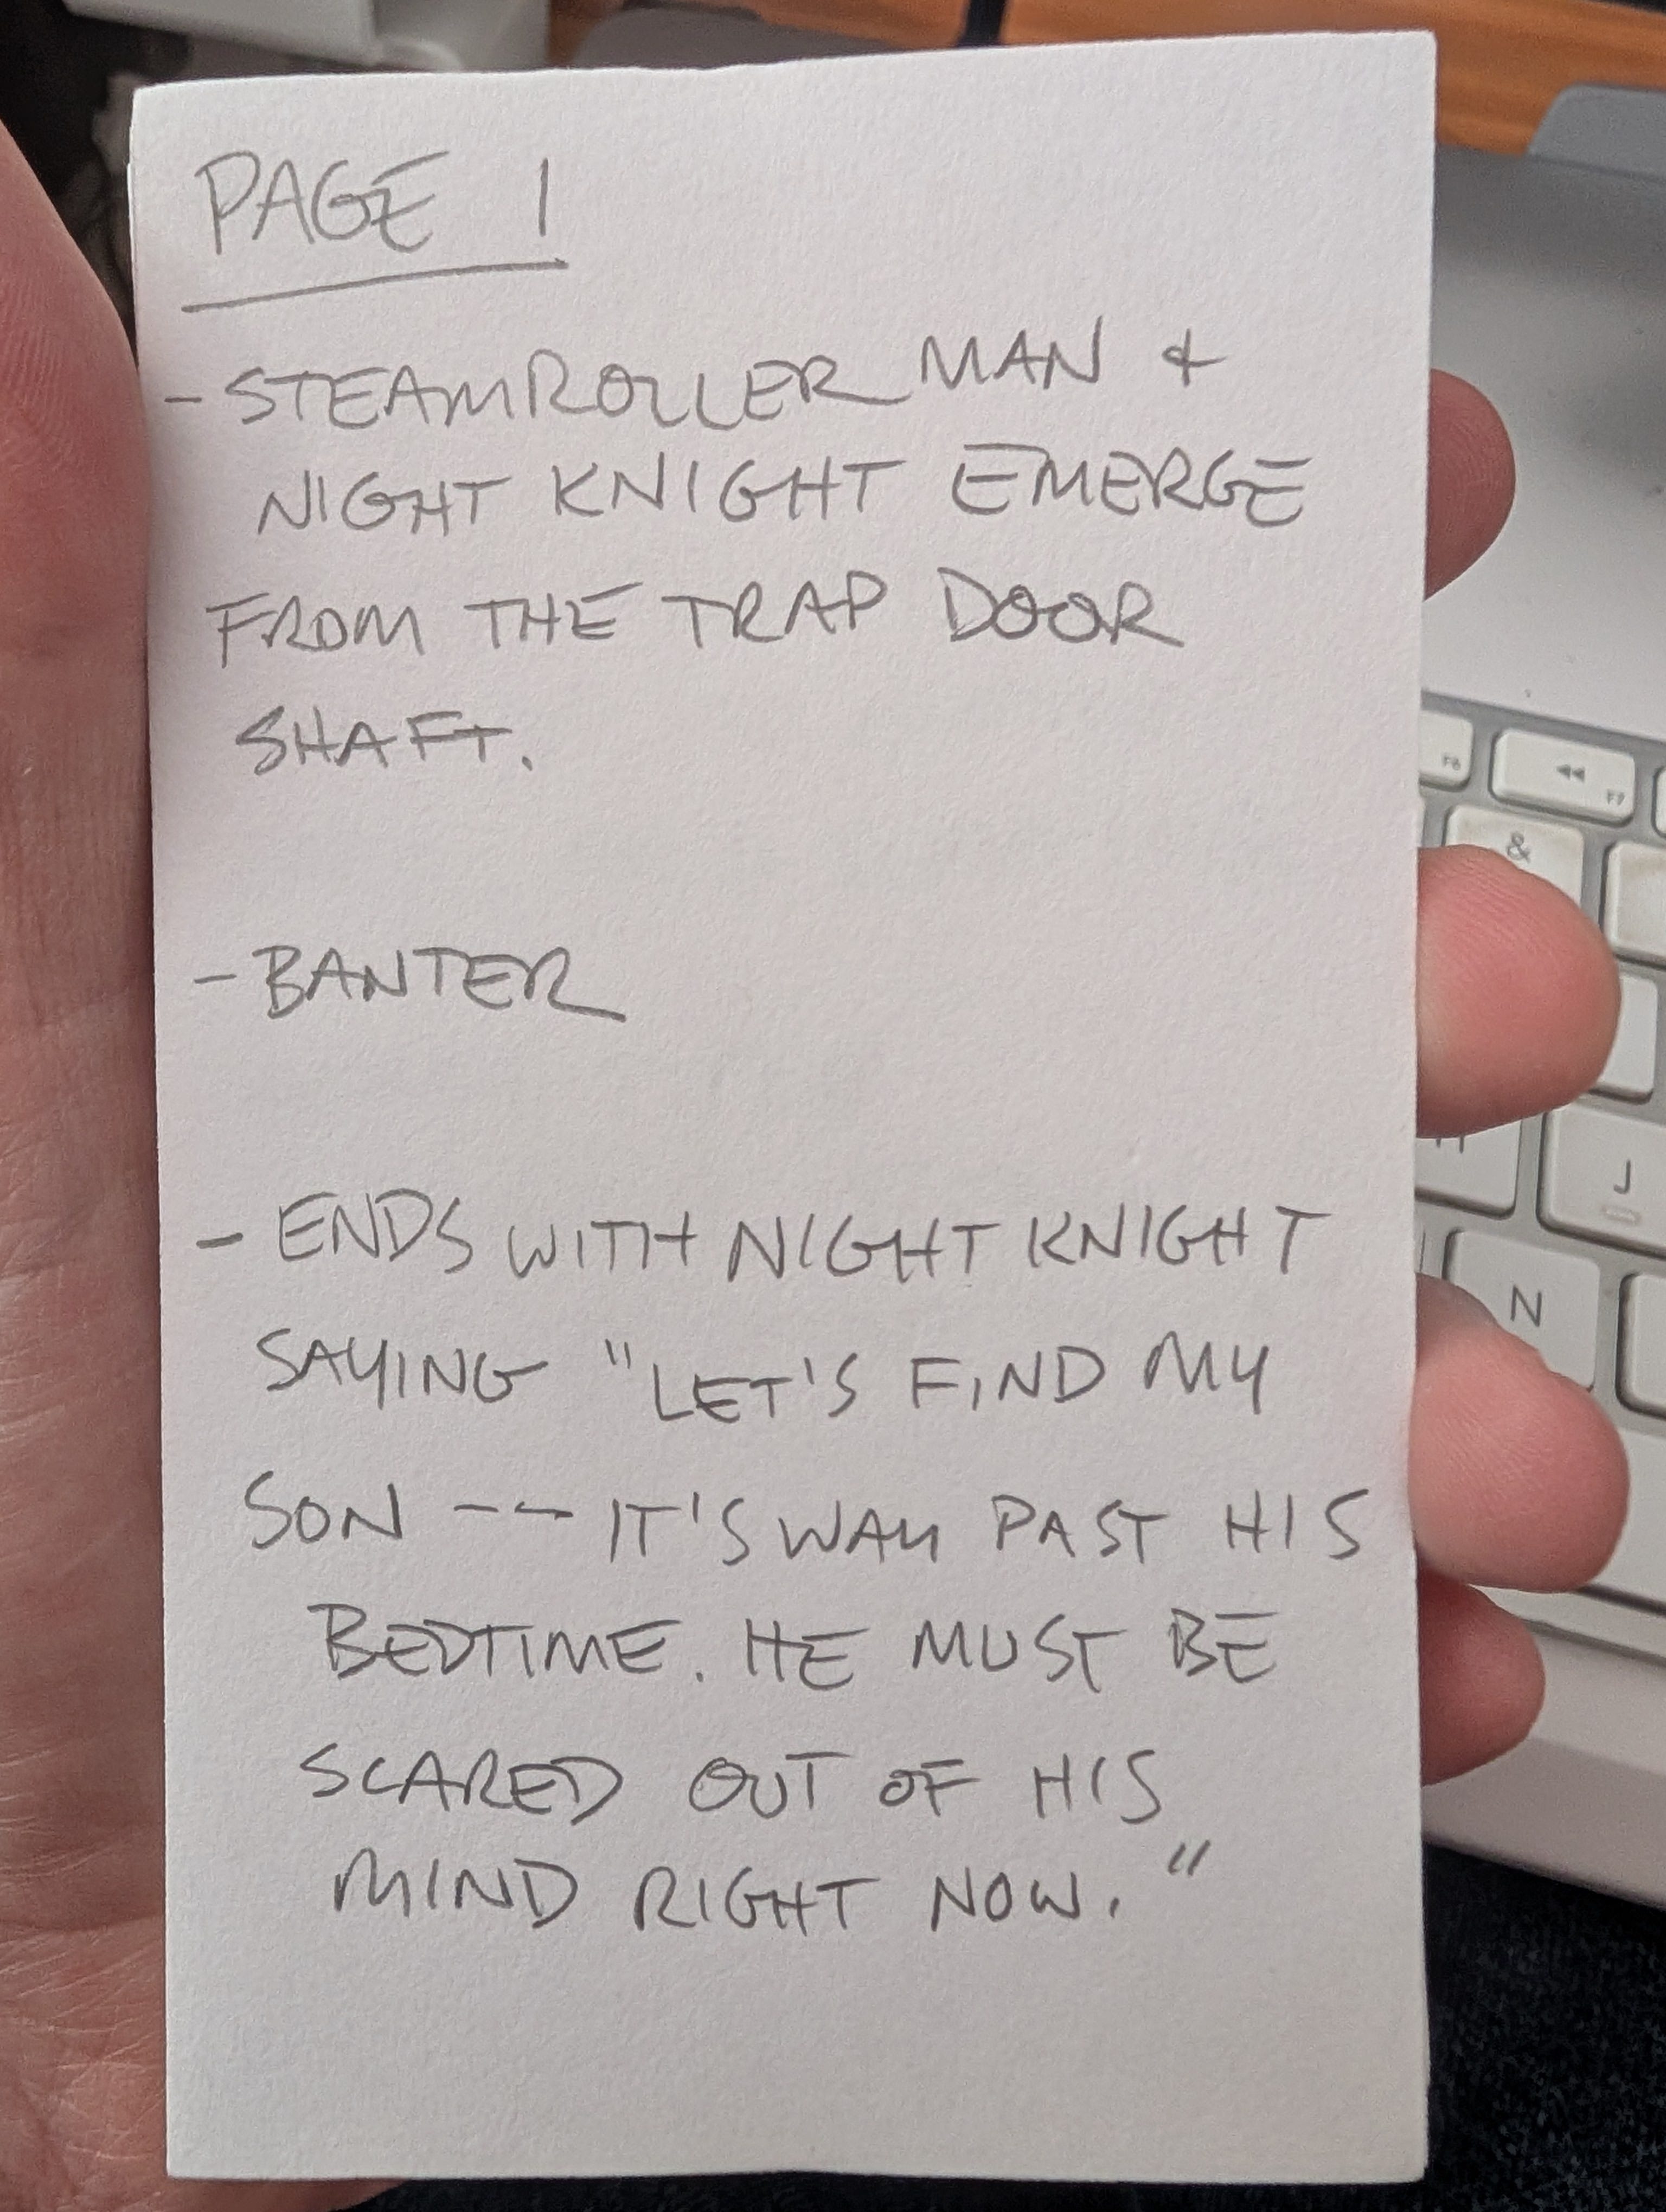 PAGE 1
- STEAMROLLER MAN &
NIGHT KNIGHT EMERGE
FROM THE TRAP DOOR
SHAFT.
- BANTER
- ENDS WITH NIGHT KNIGHT
SAYING "LET'S FIND MY
SON -- IT'S WAY PAST HIS
BEDTIME. HE MUST BE
SCARED OUT OF HIS
MIND RIGHT NOW."
F6
◀◀
F7
&
J
N